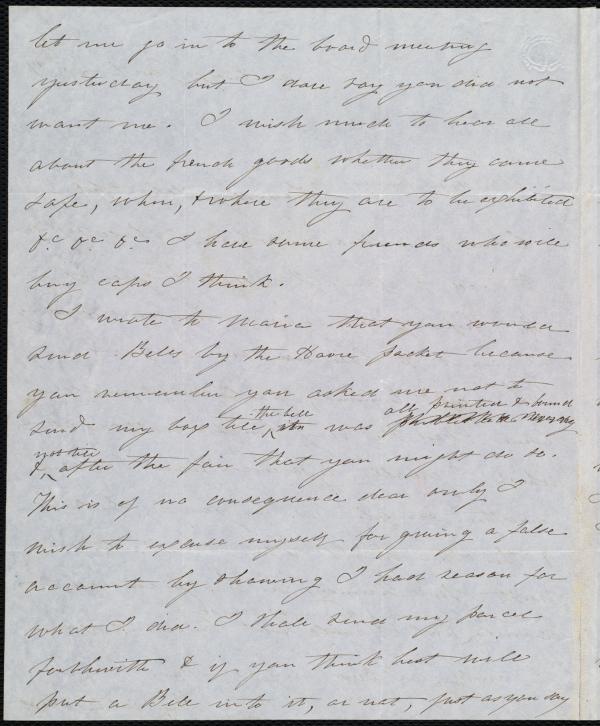 let me go in to the board meeting
yesterday but I dare say you did not
want me. I wish much to hear all
about the french goods whether they came
safe, when, & where they are to be exhibited
&c &c &c I have some friends who will
buy caps I think.
I wrote to Maria that you would
send Bells by the Havre packet because
you remember you asked me not to
all printed & bound
send my box till the bell was
not till
& after the fair that you might do so.
This is of no consequence dear only I
wish to excuse myself for giving a false
account by showing I had reason for
what I did. I shall send my parcel
forthwith & if you think best will
put a Bell into it, or not, just as you say